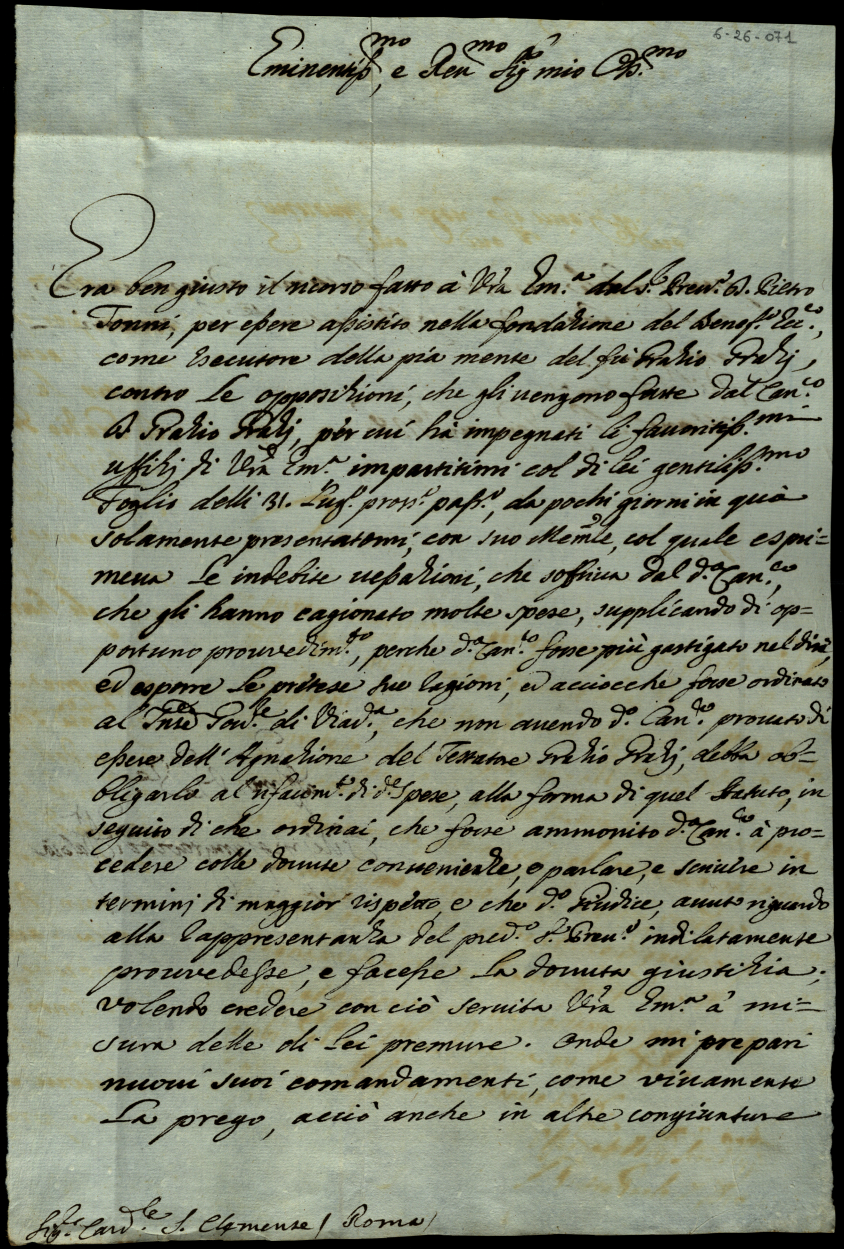 6-26-071
Eminentiss.mo, e Reu.mo Sig.r mio Oss.mo
Era ben giusto il ricorso fatto à Vrã Em.a dal S.r Preu.o D. Pietro
Tonni, per essere assistito nella fondazione del Benef.o Ecc.o,
come Esecutore della pia mente del fù Orazio Orazj,
contro le opposizioni, che gli uengono fatte dal Can.co
D. Orazio Orazj, per cui hà impegnati li fauoritiss.mi
uffizj di Vrã Em.a impartitimi col di lei gentiliss.mo
Foglio delli 31. Lug.o pross.o pass.o, da pochi giorni in quà
solamente presentatomi, con suo Memle, col quale espri=
meua le indebite uessazioni, che soffriua dal d.o Can.co,
che gli hanno cagionato molte spese, supplicando di op=
portuno prouuedim.to, perche d.o Can.co fosse più gastigato nel dire,
ed esporre le pretese sue ragioni, ed acciocche fosse ordinato
al di Viad.a, che non auendo d.o Can.co prouato di
essere dell'Agnazione del Testatore Orazio Orazj, debba ob=
bligarlo al rifacim.to di d.e spese, alla forma di quel Statuto, in
seguito di che ordinai, che fosse ammonito d.o Can.co à pro=
cedere colle douute conuenienze, e parlare, e scriuere in
termini di maggior rispetto, e che d.o Giudice, auuto riguardo
alla rappresentanza del pred.o S.r Preu.o indilatamente
prouuedesse, e facesse la douuta giustizia;
volendo credere con ciò seruita Vrã Em.a à mi=
sura delle di Lei premure. Onde mi prepari
nuoui suoi comandamenti, come viuamente
La prego, acciò anche in altre congiunture
Sig.r Card.le S. Clemente (Roma)